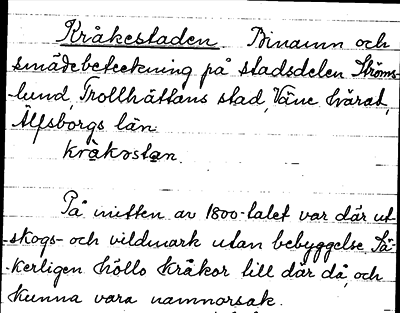 Kråkestaden Binamn och
smädebeteckning på stadsdelen Ströms-
lund, Trollhättans stad, Väne härad,
Älfsborgs län
kråkostan.
På mitten av 1800-talet var där ut
skogs- och vildmark utan bebyggelse Sä-
kerligen höllo kråkor till där då, och
kunna vara namnorsak.